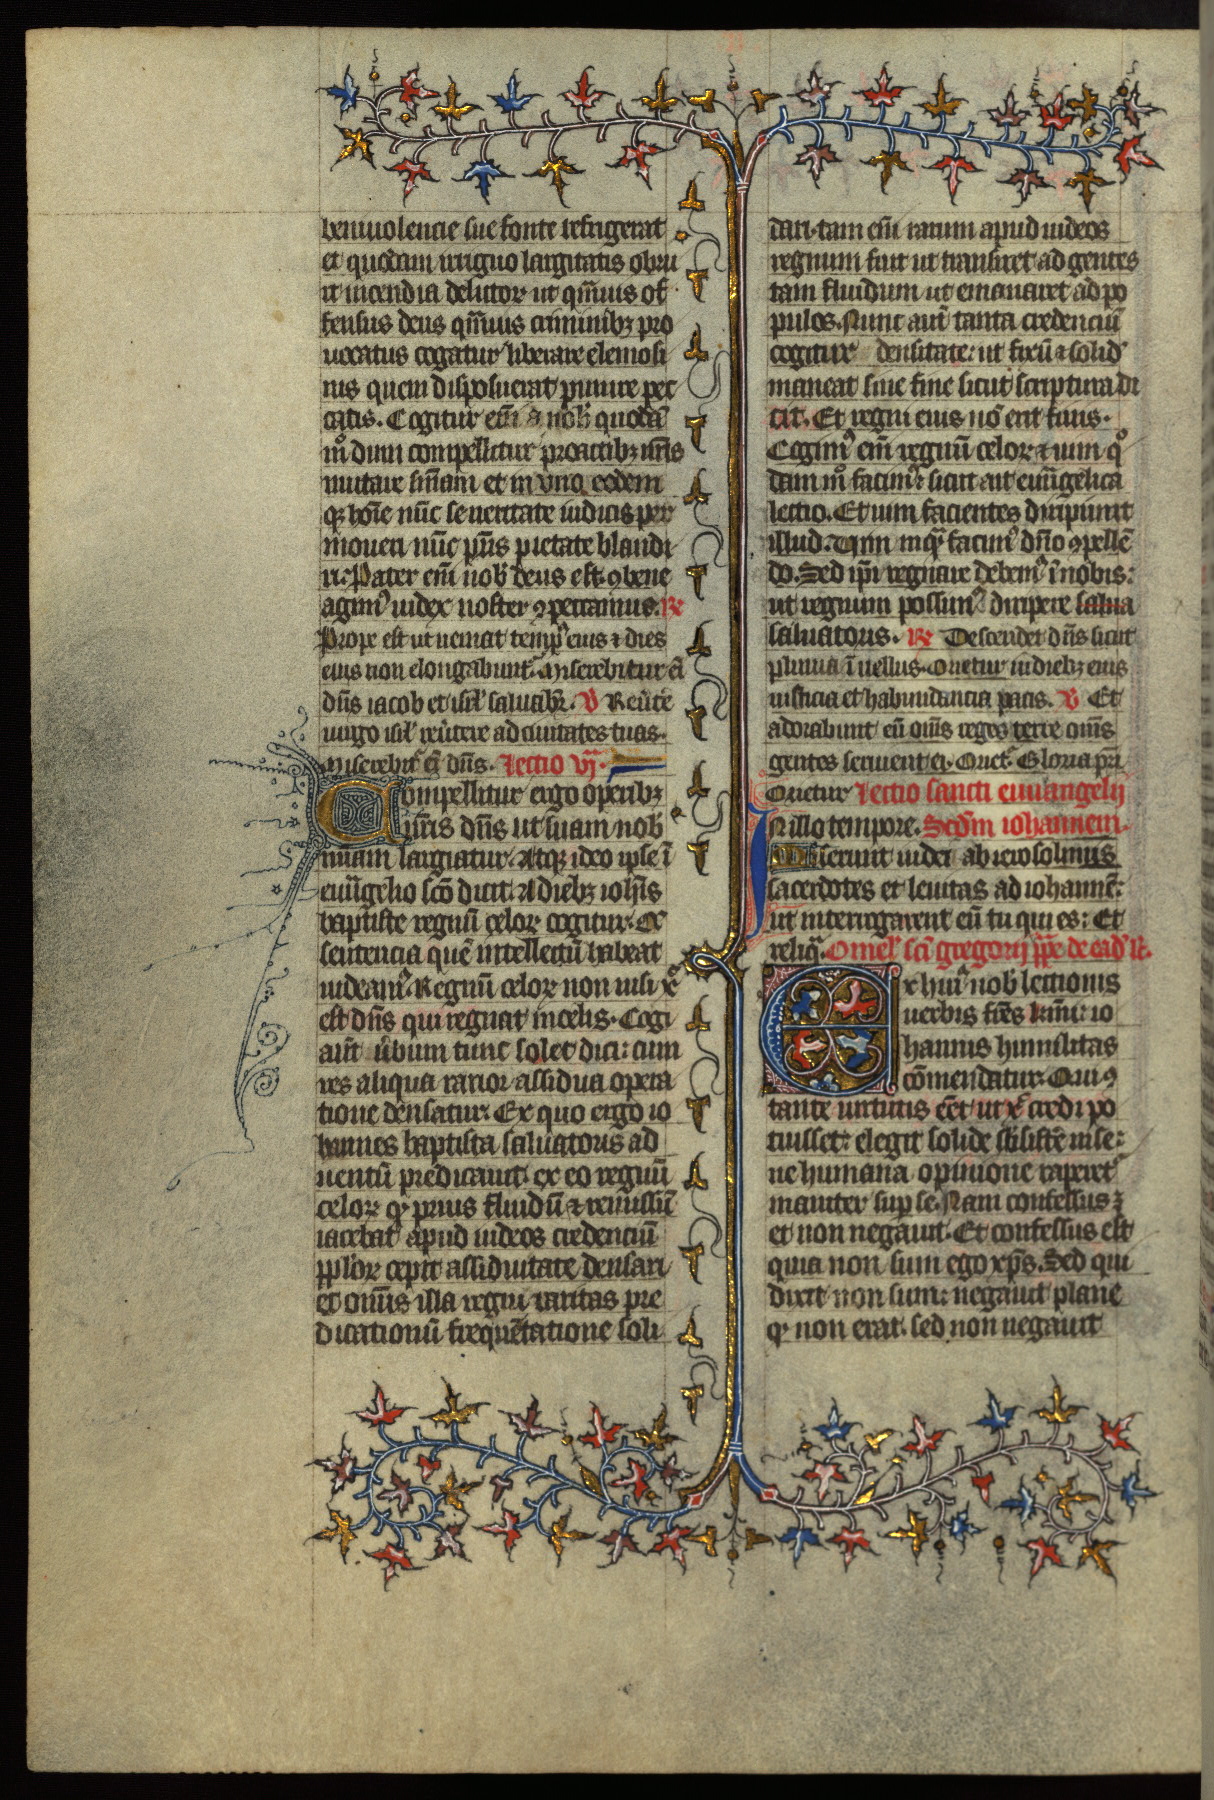 beniuolencie sue fonte refrigerat
et quodam irriguo largitatis obru
it incendia delictoꝝ ut qͣmuis of
fensus deus qͣmuis criminibꝫ pro
uocatus cogatur liberare elemosi
nis quem disposuerat punire pec
catis. Cogitur em̄ a nob̵ quodā
mͦ dum compellitur pro actibꝫ nr̄is
mutare sn̄iam et in vno eodem
qꝫ hoīe nūc seueritate iudicis per
moueri nūc pr̄is pietate blandi
ri. Pater em̄ nob̵ deus est ꝯ bene
agimꝰ iudex noster ꝯ peccamus. ℟
Prope est ut ueniat tempꝰ eius ⁊ dies
eius non elongabunt. Miserebitur ei᷒
dn̄s iacob et isrl̵ saluabit᷑. V Reūtē
uirgo isrl̵ reūtere ad ciuitates tuas.
Miserebit᷑ dn̄s. Lectio vjͣ.
Compellitur ergo operibꝫ
nr̄is dn̄s ut suam nob̵
miām largiatur. Atqꝫ ideo ipse ī
euu̅gelio sc̄o dicit. A diebꝫ ioh̄is
baptiste regnū celoꝝ cogitur. Ex
sentencia quē intellectū habeat
uideamꝰ. Regnū celoꝝ non nisi xp̄c
est dn̄s qui regnat in celis. Cogi
aut̄ u̅bum tunc solet dici: cum
res aliqua rarior assidua opera
tione densatur. Ex quo ergo io
hannes baptista saluatoris ad
uentū predicauit. ex eo regnū
celoꝝ qꝫ prius fluidū ⁊ remissū
iacebat apud iudeos credenciū
pp̄loꝝ cepit assiduitate densari
et omīs illa regni raritas pre
dicationū frequētatione soli
dari. tam em̄ rarum apud iudeos
regnum fuit ut transiret ad gentes
tam fluidum ut emanaret ad po
pulos. Nunc aut̄ tanta credenciū
cogitur densitate: ut fixū ⁊ solid̄
maneat sine fine sicut scriptura di
cit. Et regni eius nō erit finis.
Cogimꝰ em̄ regnū celoꝝ ⁊ uim qͦ
dam mͦ facimꝰ: sicut ait euu̅gelica
lectio. Et uim facientes diripiunt
illud. Uim inqͣ facimꝰ dn̄o ꝯpellē
do. Sed ip̄i regnare debemꝰ ī nobis:
ut regnum possimꝰ diripere salua
saluatoris. ℟ Descendet dn̄s sicut
pluuia ī uellus. Orietur in diebꝫ eius
iusticia et habundancia pacis. V Et
adorabunt eū om̄s reges terre om̄s
gentes seruient ei. Oriet᷑. Gloria pr̄i
Orietur Lectio sancti euuangelij
In illo tempore. Scd̄m iohannem.
Miserunt iudei ab ierosolimis
sacerdotes et leuitas ad iohannē:
ut interrogarent eū tu qui es: Et
reliqͣ. Omel̵ sc̄i gregorij pp̄e de ead̄ lc̄.
Ex huiꝰ nob̵ lectionis
uerbis fr̄es kar̄mi: io
hannis humilitas
cōmendatur. Qui cū
tante uirtutis eēt ut xp̄c credi po
tuisset: elegit solide ssistē in se:
ne humana opinione raperet᷑
inaniter sup̄ se. Nam confessus ē
et non negauit. Et confessus est
quia non sum ego xp̄s. Sed qui
dixit non sum: negauit plane
qꝫ non erat. sed non negauit